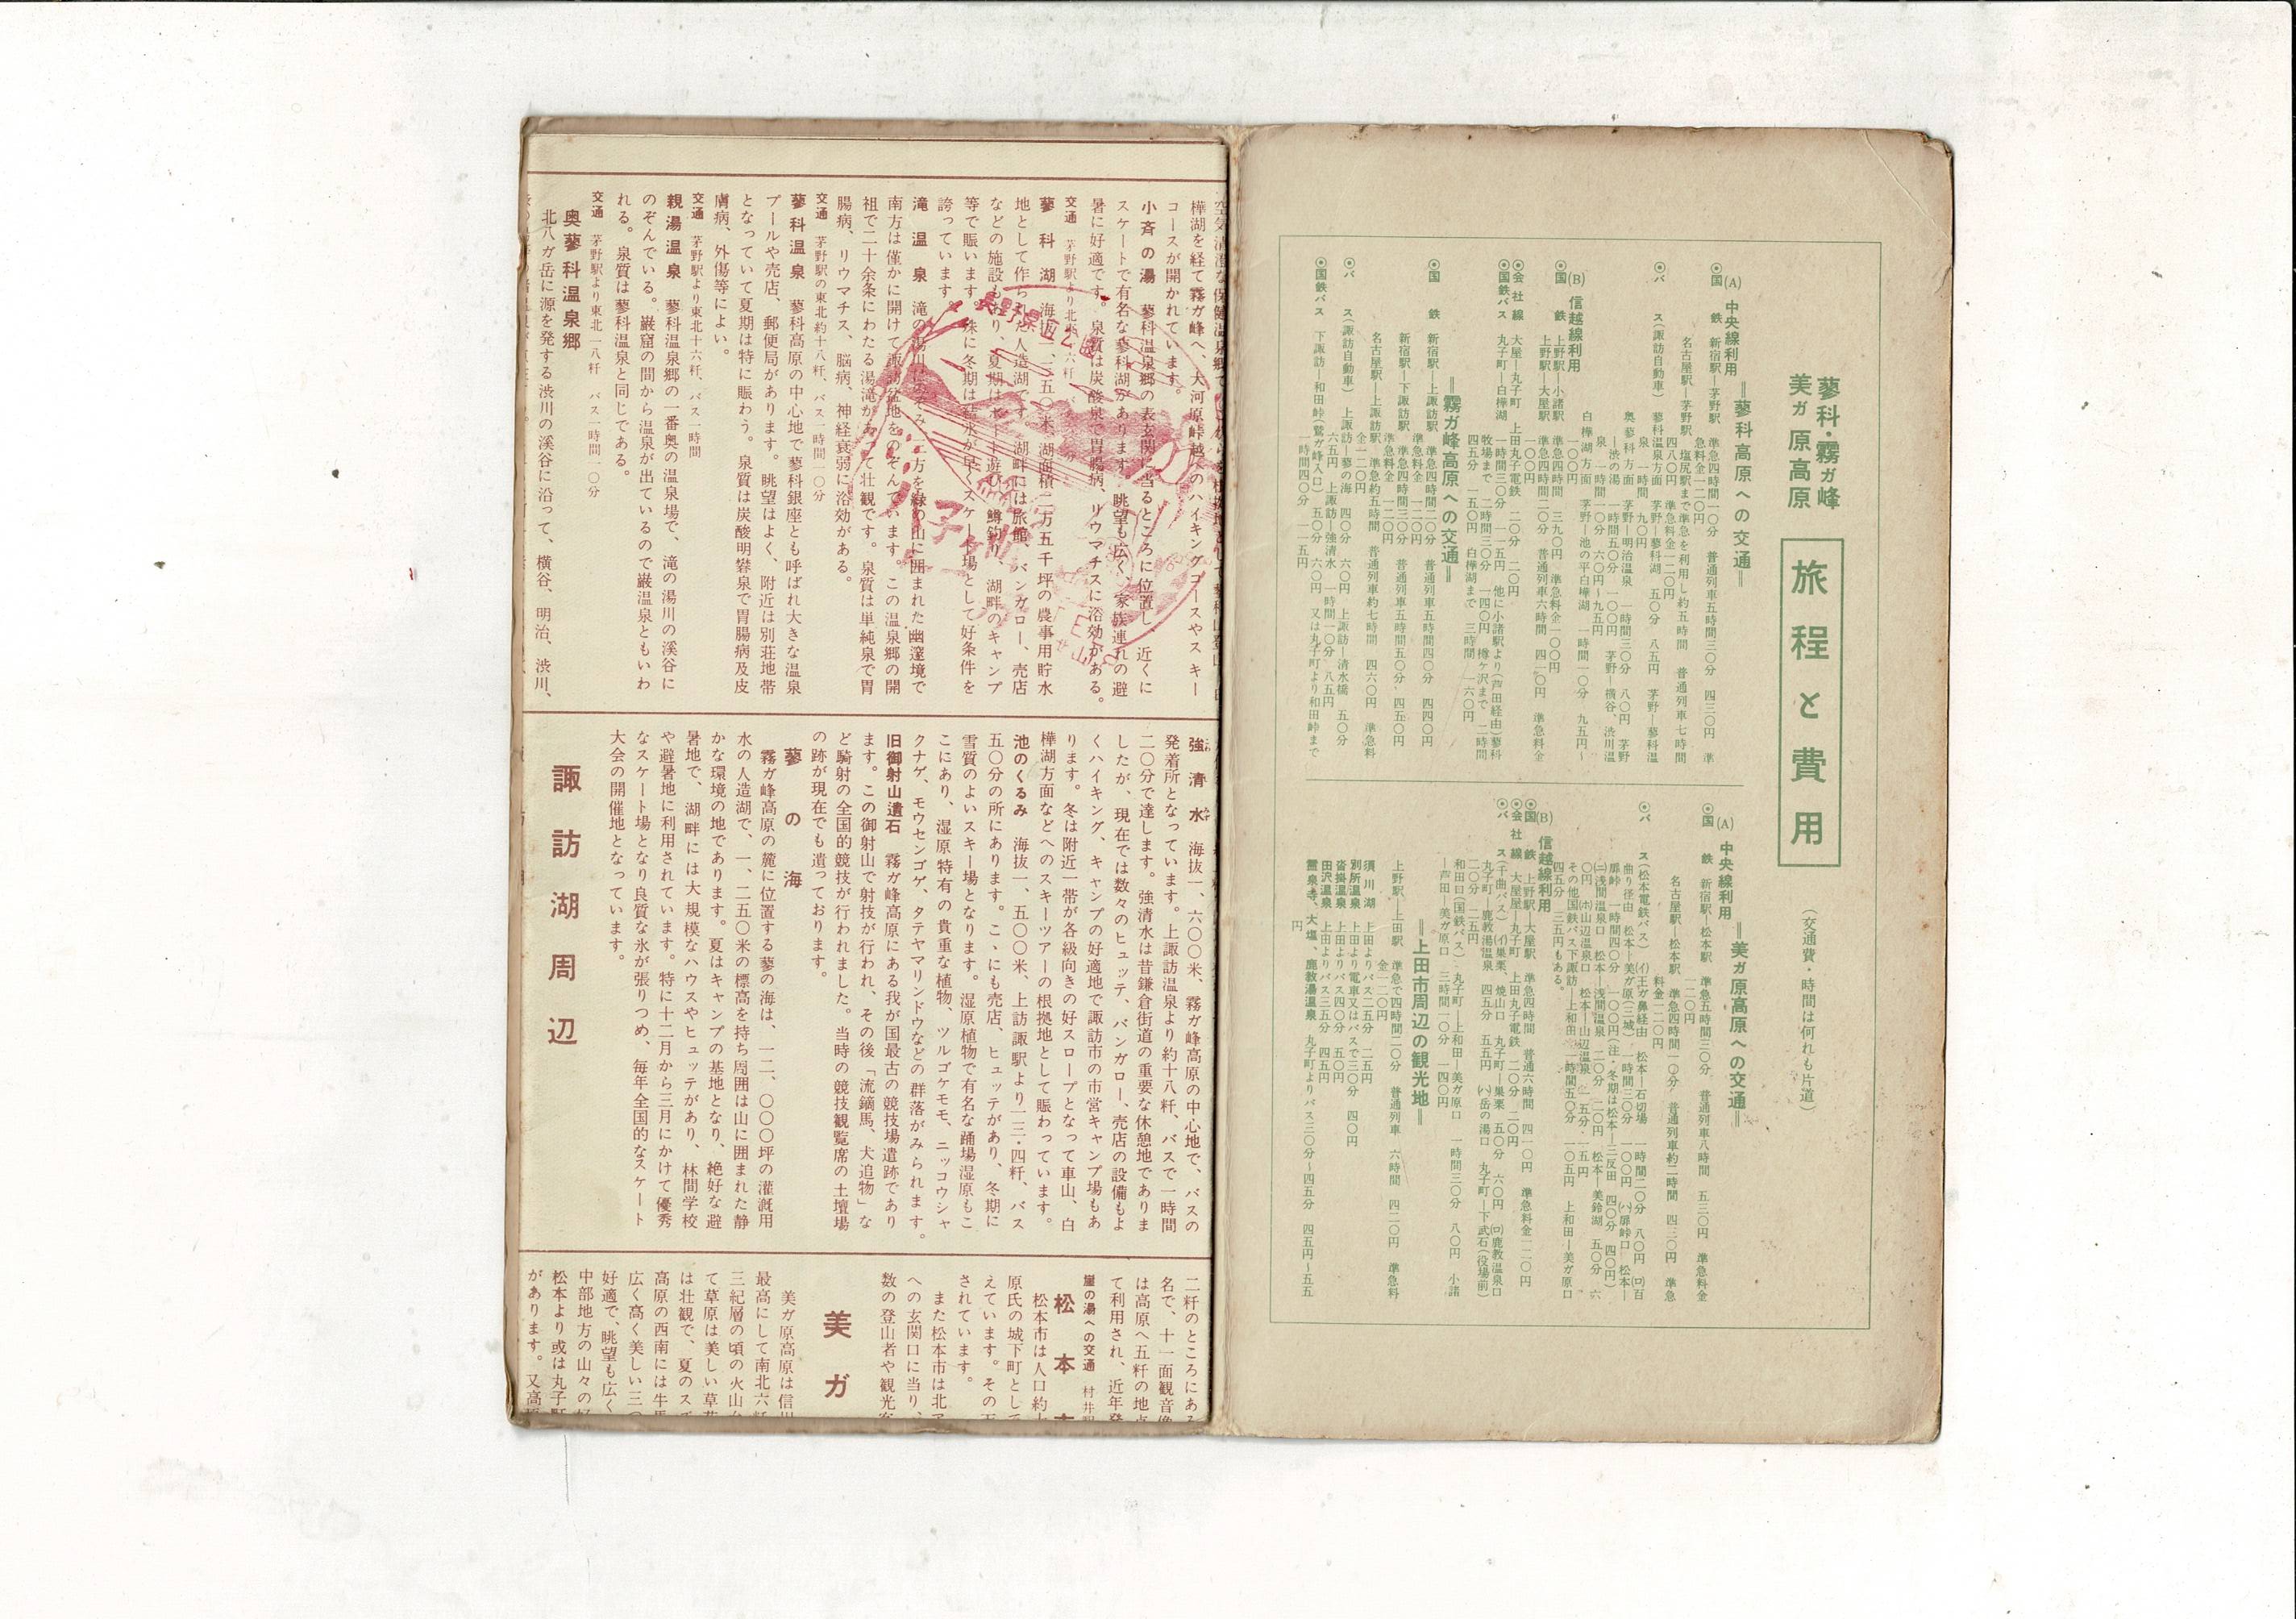 蓼科・霧ガ峰
美ガ原高原
旅程と費用
(交通費・時間は何れも片道)
＝蓼科高原への交通＝
(A) 中央線利用
◉国鉄 新宿駅―茅野駅 準急四時間一〇分 普通列車五時間三〇分 四三〇円 準
急料金一二〇円
名古屋駅―茅野駅 塩尻駅まで準急を利用し約五時間 普通列車七時間
四八〇円 準急料金一二〇円
◉バス(諏訪自動車) 蓼科温泉方面 茅野―蓼科湖 五〇分 八五円 茅野―蓼科温
泉 一時間 九〇円
奥蓼科方面 茅野―明治温泉 一時間三〇分 八〇円 茅野
―渋の湯 一時間五〇分 一〇〇円 茅野―横谷、渋川温
泉 一時間一〇分 六〇円〜九五円
白樺湖方面 茅野―池の平白樺湖 一時間一〇分 九五円〜
一〇〇円
(B) 信越線利用
◉国鉄 上野駅―小諸駅 準急四時間 三九〇円 準急料金一〇〇円
上野駅―大屋駅 準急四時間二〇分 普通列車六時間 四一〇円 準急料金
一〇〇円
◉会社線 大屋―丸子町 上田丸子電鉄 二〇分 二〇円
◉国鉄バス 丸子町―白樺湖 一時間三〇分 一一五円 他に小諸駅より(芦田経由)蓼科
牧場まで 二時間三〇分 一四〇円 樽ヶ沢まで 二時間
四五分 一五〇円 白樺湖まで 三時間 一六〇円
＝霧ガ峰高原への交通＝
◉国鉄 新宿駅―上諏訪駅 準急四時間二〇分 普通列車五時間四〇分 四四〇円
準急料金 一二〇円
新宿駅―下諏訪駅 準急四時間三〇分 普通列車五時間五〇分 四五〇円
準急料金 一二〇円
名古屋駅―上諏訪駅 準急約五時間 普通列車約七時間 四六〇円 準急料
金一二〇円
◉バス(諏訪自動車) 上諏訪―蓼の海 四〇分 六〇円 上諏訪―清水橋 五〇分
六五円 上諏訪―強清水 一時間一〇分 八五円
◉国鉄バス 下諏訪―和田峠(鷲ガ峰入口) 五〇分 六〇円 又は丸子町より和田峠まで
一時間四〇分 一一五円
＝美ガ原高原への交通＝
(A) 中央線利用
◉国鉄 新宿駅―松本駅 準急五時間三〇分 普通列車八時間 五三〇円 準急料金
一二〇円
名古屋駅―松本駅 準急四時間一〇分 普通列車約二時間 四三〇円 準急
料金一二〇円
◉バス(松本電鉄バス) (イ)王ガ鼻経由 松本―石切場 一時間二〇分 八〇円 (ロ)百
曲り径由 松本―美ガ原(三城) 一時間三〇分 一〇〇円 (ハ)扉峠口 松本―
扉峠 一時間四〇分 一〇〇円(注・冬期は松本―三反田 四〇分 四〇円)
(ニ)浅間温泉口 松本―浅間温泉 二〇分 二〇円 松本―美鈴湖 五〇分 六
〇円 (ホ)山辺温泉口 松本―山辺温泉 一五分 一五円
その他国鉄バス下諏訪―上和田 一時間五〇分 一〇五円 上和田―美ガ原口
四五分 三五円もある。
(B) 信越線利用
◉国鉄 上野駅―大屋駅 準急四時間 普通六時間 四一〇円 準急料金一二〇円
◉会社線 大屋駅―丸子町 上田丸子電鉄 二〇分 二〇円
◉バス(千曲バス) (イ)巣栗、焼山口 丸子町―巣栗 五〇分 六〇円 (ロ)鹿教温泉口
丸子町―鹿教湯温泉 四五分 五五円 (ハ)岳の湯口 丸子町―下武石(役場前)
二〇分 二五円
和田口(国鉄バス) 丸子町―上和田―美ガ原口 一時間三〇分 八〇円 小諸
―芦田―美ガ原口 三時間一〇分 一四〇円
＝上田市周辺の観光地＝
上野駅―上田駅 準急で四時間二〇分 普通列車 六時間 四二〇円 準急料
金一二〇円
須川湖 上田よりバス二五分 二五円
別所温泉 上田より電車又はバスで三〇分 四〇円
沓掛温泉 上田よりバス四〇分 五〇円
田沢温泉 上田よりバス三五分 四五円
霊泉寺、大塩、鹿教湯温泉 丸子町よりバス三〇分〜四五分 四五円〜五五
円
樺湖を経て霧ガ峰へ、大河原峠越へのハイキングコースやスキー
コースが開かれています。
小斉の湯 蓼科温泉郷の表玄関に当るところに位置し、近くに
スケートで有名な蓼科湖があります。眺望も広く、家族連れの避
暑に好適です。泉質は炭酸泉で胃腸病、リウマチスに浴効がある。
交通 茅野駅より北 六粁
蓼科湖 海抜一、二五〇米、湖面積二万五千坪の農事用貯水
地として作られた人造湖です。湖畔には旅館、バンガロー、売店
などの施設もあり、夏期はボート遊び、鱒釣り、湖畔のキャンプ
等で賑います。殊に冬期は結氷が早くスケート場として好条件を
誇っています。
滝温泉 滝の湯川にのぞみ、三方を緑の山に囲まれた幽邃境で
南方は僅かに開けて諏訪盆地をのぞんでいます。この温泉郷の開
祖で二十余条にわたる湯滝があって壮観です。泉質は単純泉で胃
腸病、リウマチス、脳病、神経衰弱に浴効がある。
交通 茅野駅の東北約十八粁、バス一時間一〇分
蓼科温泉 蓼科高原の中心地で蓼科銀座とも呼ばれ大きな温泉
プールや売店、郵便局があります。眺望はよく、附近は別荘地帯
となっていて夏期は特に賑わう。泉質は炭酸明礬泉で胃腸病及皮
膚病、外傷等によい。
交通 茅野駅より東北十六粁、バス一時間
親湯温泉 蓼科温泉郷の一番奥の温泉場で、滝の湯川の溪谷に
のぞんでいる。巌窟の間から温泉が出ているので巌温泉ともいわ
れる。泉質は蓼科温泉と同じである。
交通 茅野駅より東北一八粁 バス一時間一〇分
奥蓼科温泉郷
北八ガ岳に源を発する渋川の溪谷に沿って、横谷、明治、渋川、
強清水 海抜一、六〇〇米、霧ガ峰高原の中心地で、バスの
発着所となっています。上諏訪温泉より約十八粁、バスで一時間
二〇分で達します。強清水は昔鎌倉街道の重要な休憩地でありま
したが、現在では数々のヒュッテ、バンガロー、売店の設備もよ
くハイキング、キャンプの好適地で諏訪市の市営キャンプ場もあ
ります。冬は附近一帯が各級向きの好スロープとなって車山、白
樺湖方面などへのスキーツアーの根拠地として賑わっています。
池のくるみ 海抜一、五〇〇米、上訪諏駅より一三・四粁、バス
五〇分の所にあります。こゝにも売店、ヒュッテがあり、冬期に
雪質のよいスキー場となります。湿原植物で有名な踊場湿原もこ
こにあり、湿原特有の貴重な植物、ツルゴケモモ、ニッコウシャ
クナゲ、モウセンゴゲ、タテヤマリンドウなどの群落がみられます。
旧御射山遺石 霧ガ峰高原にある我が国最古の競技場遺跡であり
ます。この御射山で射技が行われ、その後「流鏑馬、犬追物」な
ど騎射の全国的競技が行われました。当時の競技観覧席の土壇場
の跡が現在でも遺っております。
蓼の海
霧ガ峰高原の麓に位置する蓼の海は、一二、〇〇〇坪の灌漑用
水の人造湖で、一、二五〇米の標高を持ち周囲は山に囲まれた静
かな環境の地であります。夏はキャンプの基地となり、絶好な避
暑地で、湖畔には大規模なハウスやヒュッテがあり、林間学校
や避暑地に利用されています。特に十二月から三月にかけて優秀
なスケート場となり良質な氷が張りつめ、毎年全国的なスケート
大会の開催地となっています。
諏訪湖周辺
二粁のところにある
名で、十一面観音像
は高原へ五粁の地点
て利用され、近年発
崖の湯への交通 村井駅
松本市
松本市は人口約十
原氏の城下町として
えています。その天
されています。
また松本市は北ア
への玄関口に当り、
数の登山者や観光客
美ガ
美ガ原高原は信州
最高にして南北六粁
三紀層の頃の火山台
て草原は美しい草花
は壮観で、夏のスズ
高原の西南には牛馬
広く高く美しい三〇
好適で、眺望も広く
中部地方の山々の好
松本より或は丸子町
があります。又高原